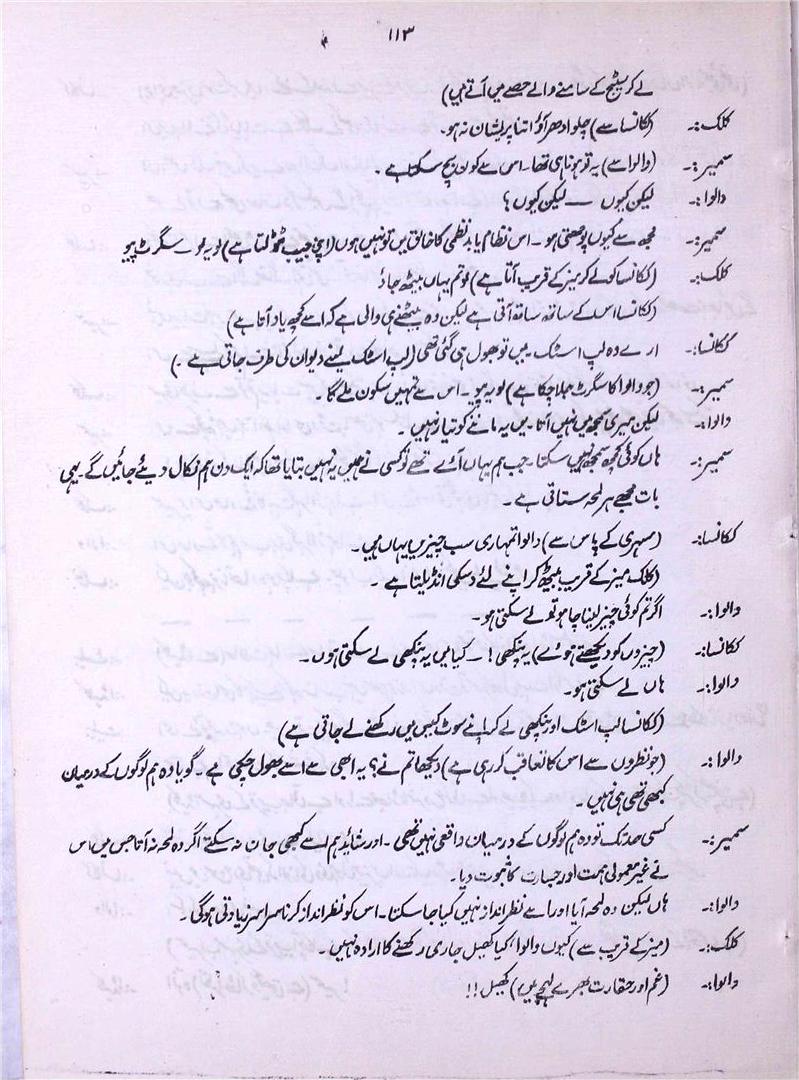 ۱۱۳
لے کر سٹیج کے سامنے والے حصے میں آتے ہیں)
کلک:۔ (ککانسا سے) چلو ادھر آؤ اتنا پریشان نہ ہو۔
سمیر:۔ (والوا سے) یہ تو ہونا ہی تھا۔ اس سے کون بچ سکتا ہے ۔
والوا:۔ لیکن کیوں ــــ لیکن کیوں ؟
سمیر:۔ مجھ سے کیوں پوچھتی ہو۔ اس نظام یا بدنظمی کا خالق میں تو نہیں ہوں (اپنی جیب ٹٹولتا ہے) لو یہ لو۔ سگرٹ پیو
کلک:۔ (ککانسا کو لے کر میز کے قریب آتا ہے) لو تم یہاں بیٹھ جاؤ
(ککانسا اس کے ساتھ ساتھ آتی ہے لیکن وہ بیٹھنے ہی والی ہے کہ اسے کچھ یاد آتا ہے)
ککانسا:۔ ارے وہ لپ اسٹک ۔ میں تو بھول ہی گئی تھی (لپ اسٹک لینے دیوان کی طرف جاتی ہے ۔)
سمیر:۔ (جو والوا کا سگرٹ جلا چکا ہے) لو یہ پیو ۔ اس سے تمہیں سکون ملے گا ۔
والوا:۔ لیکن میری سمجھ میں نہیں آتا۔ میں یہ ماننے کو تیار نہیں ۔
سمیر:۔ ہاں کوئی کچھ سمجھ نہیں سکتا۔ جب ہم یہاں آئے تھے تو کسی نے ہمیں یہ نہیں بتایا تھا کہ ایک دن ہم نکال دیئے جائیں گے ۔ یہی
بات مجھے ہر لمحہ ستاتی ہے ۔
ککانسا:۔ (مسہری کے پاس سے) والوا تمہاری سب چیزیں یہاں ہیں ۔
(کلک میز کے قریب بیٹھ کر اپنے لئے وسکی انڈیلتا ہے ۔
والوا:۔ اگر تم کوئی چیز لینا چاہو تو لے سکتی ہو۔
ککانسا:۔ (چیزوں کو دیکھتے ہوئے) یہ پنکھی! ۔ کیا میں یہ پنکھی لے سکتی ہوں ۔
والوا:۔ ہاں لے سکتی ہو۔
(ککانسا لپ اسٹک اور پنکھی لے کر اپنے سوٹ کیس میں رکھنے لے جاتی ہے)
والوا:۔ (جو نظروں سے اس کا تعاقب کر رہی ہے) دیکھا تم نے؟ یہ ابھی سے اسے بھول چکی ہے ۔ گویا وہ ہم لوگوں کے درمیان
کبھی تھی ہی نہیں ۔
سمیر:۔ کسی حد تک تو وہ ہم لوگوں کے درمیان واقعی نہیں تھی ۔ اور شائد ہم اسے کبھی جان نہ سکتے اگر وہ لمحہ نہ آتا جس میں اس
نے غیر معمولی ہمت اور جسارت کا ثبوت دیا۔
والوا:۔ ہاں لیکن وہ لمحہ آیا اور اسے نظر انداز نہیں کیا جا سکتا ۔ اس کو نظر انداز کرنا سراسر زیادتی ہوگی ۔
کلک:۔ (میز کے قریب سے) کیوں والوا، کیا کھیل جاری رکھنے کا ارادہ نہیں ۔
والوا:۔ (غم اور حقارت بھرے لہجے میں) کھیل !!